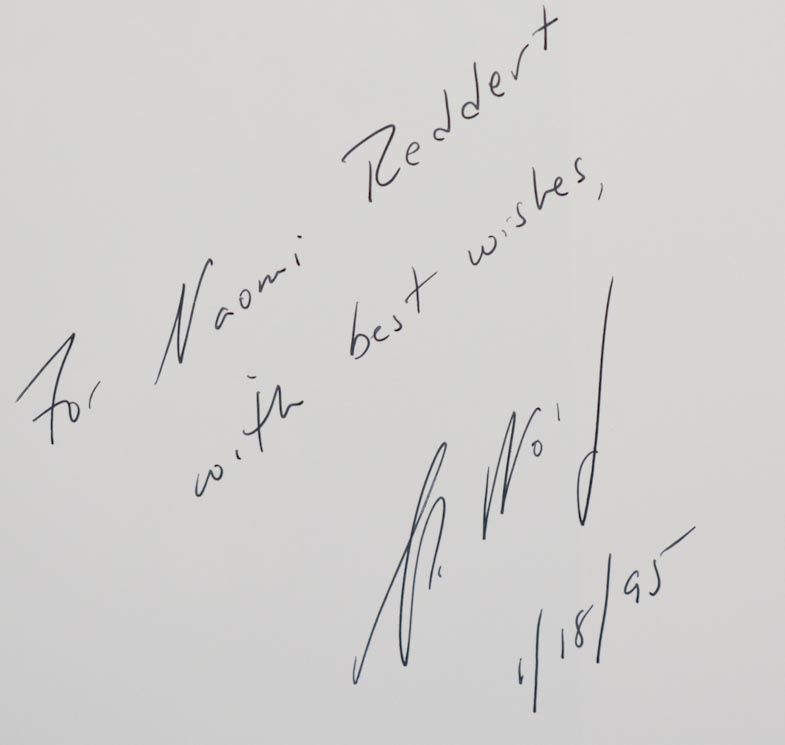 For Naomi Reddert
with best wishes,
1/18/95